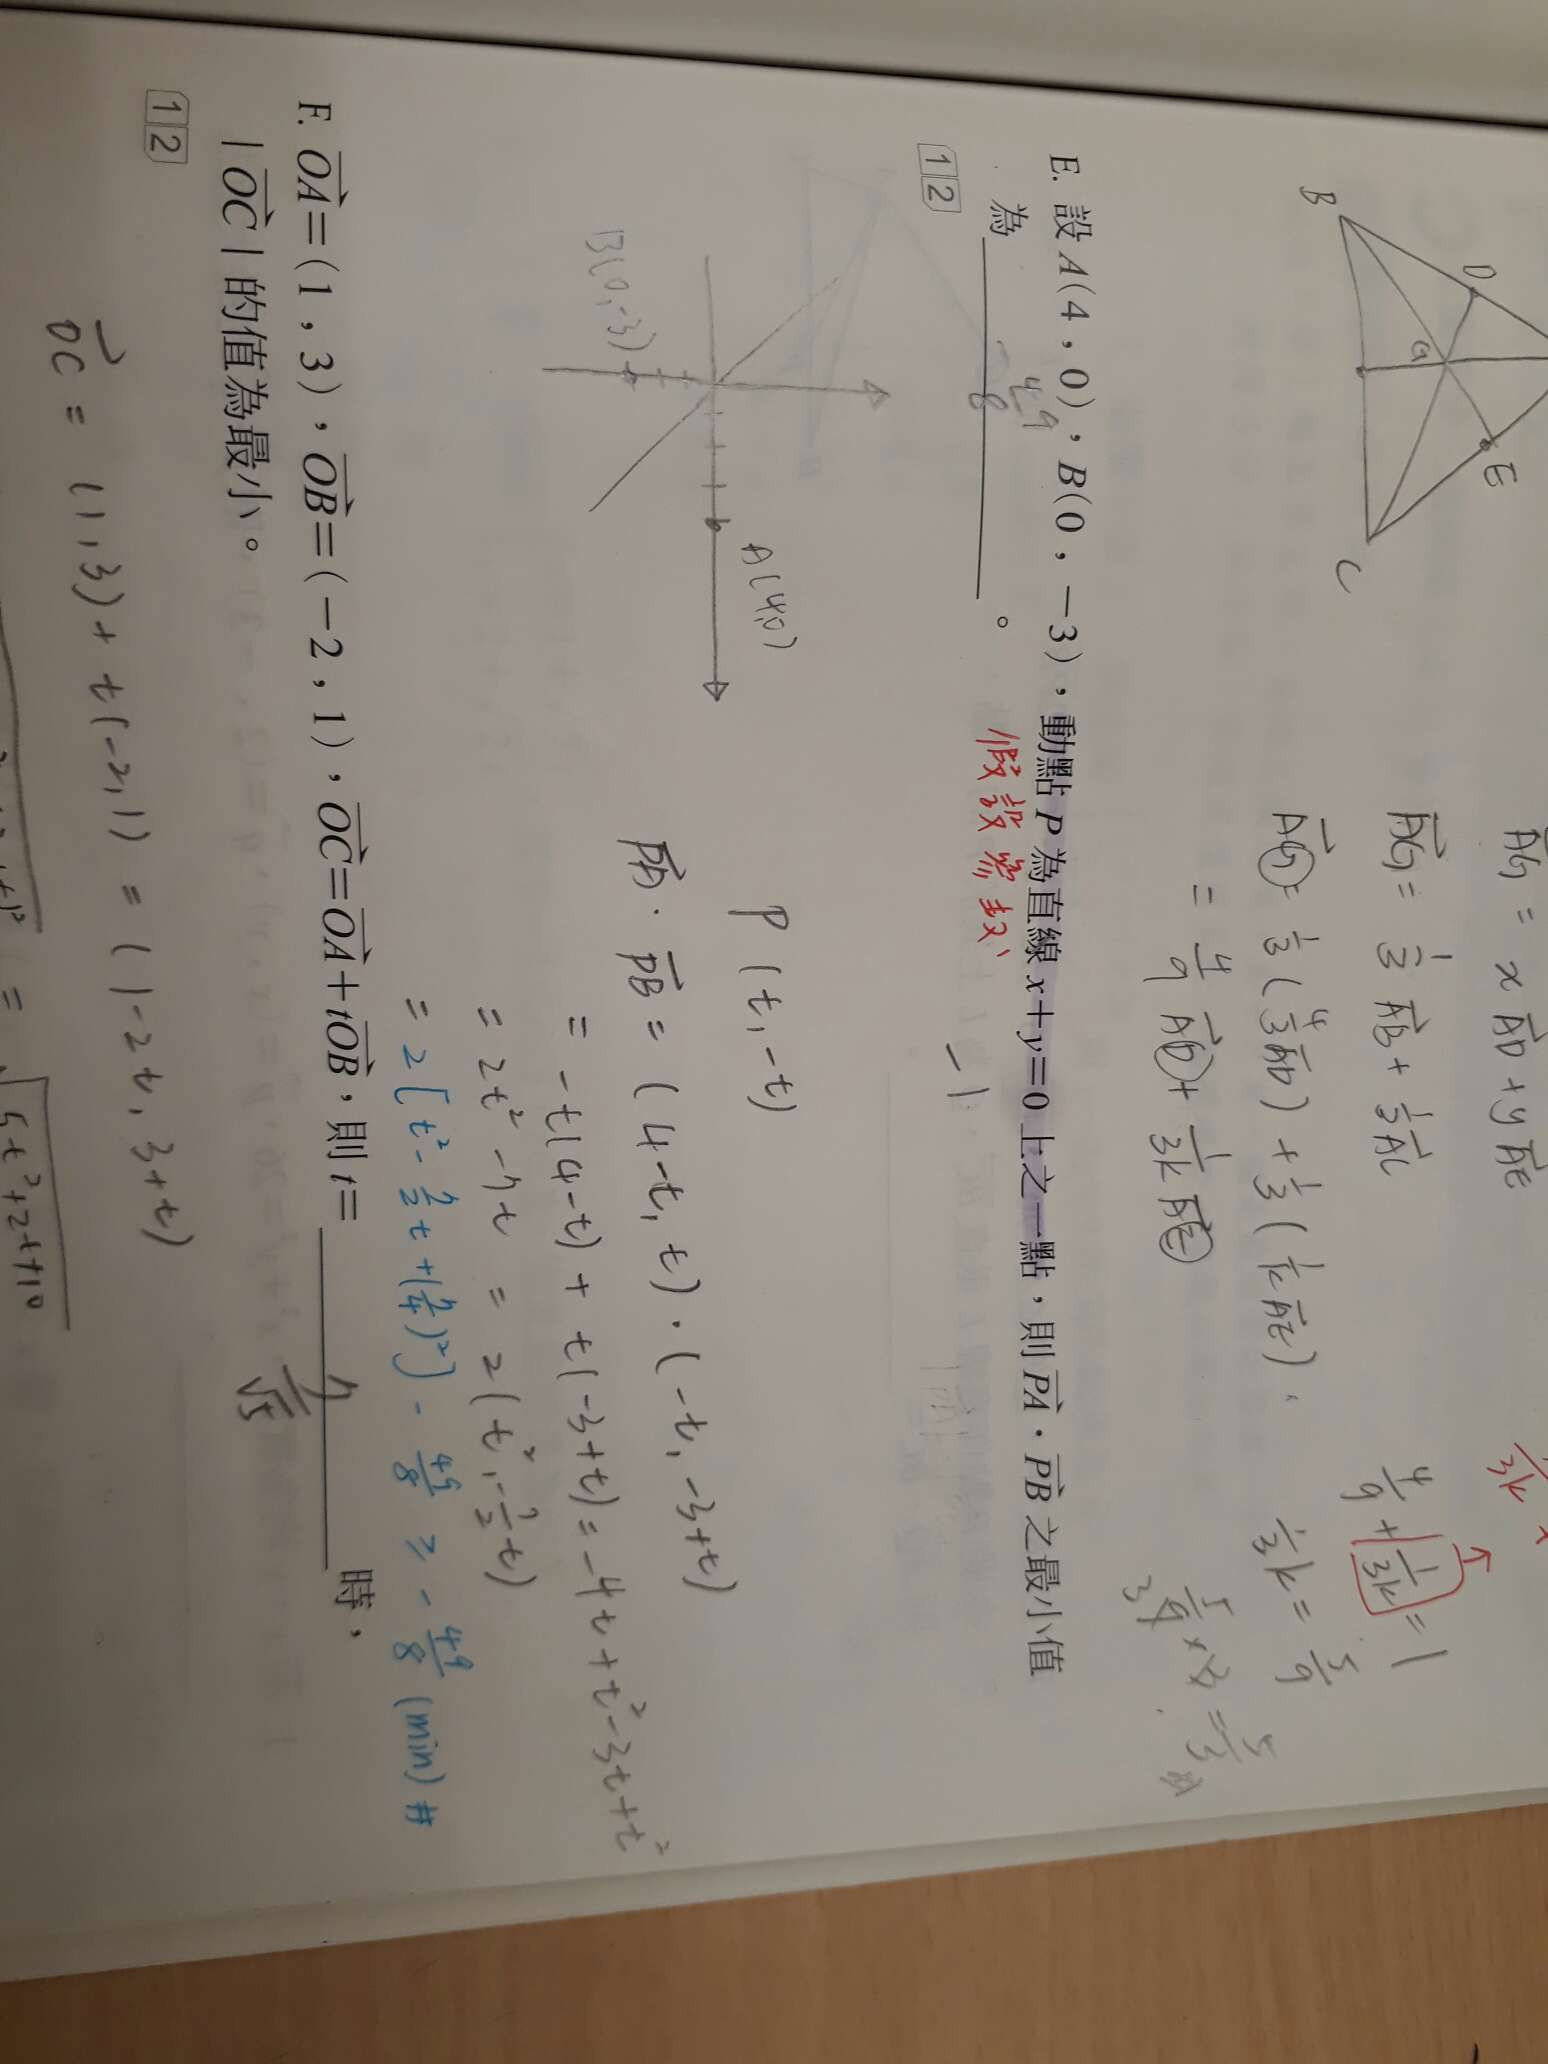 AG = x AD + y AE
AG = 1/3 AB + 1/3 AC
AG = 1/3 ( 4/3 AD ) + 1/3 ( 1/k AE )
= 4/9 AD + 1/3k AE
B
D
G
E
C
1/3k
4/9 + 1/3k = 1
1/3k = 5/9
E. 設 A(4,0),B(0,-3),動點 P 為直線 x+y=0 上之一點,則 PA · PB 之最小值
為 。
假設參數
12
-1
A(4,0)
B(0,-3)
P ( t, -t )
PA · PB = ( 4-t, t ) · ( -t, -3+t )
= -t(4-t) + t(-3+t) = -4t + t² - 3t + t²
= 2t² - 7t = 2( t² - 7/2 t )
= 2 [ t² - 7/2 t + (7/4)² ] - 49/8 ≥ - 49/8 (min) #
F. OA=(1,3),OB=(-2,1),OC=OA+tOB,則 t= 時,
|OC| 的值為最小。
12
OC = (1,3) + t(-2,1) = ( 1-2t, 3+t )
= √5t²+2t+10